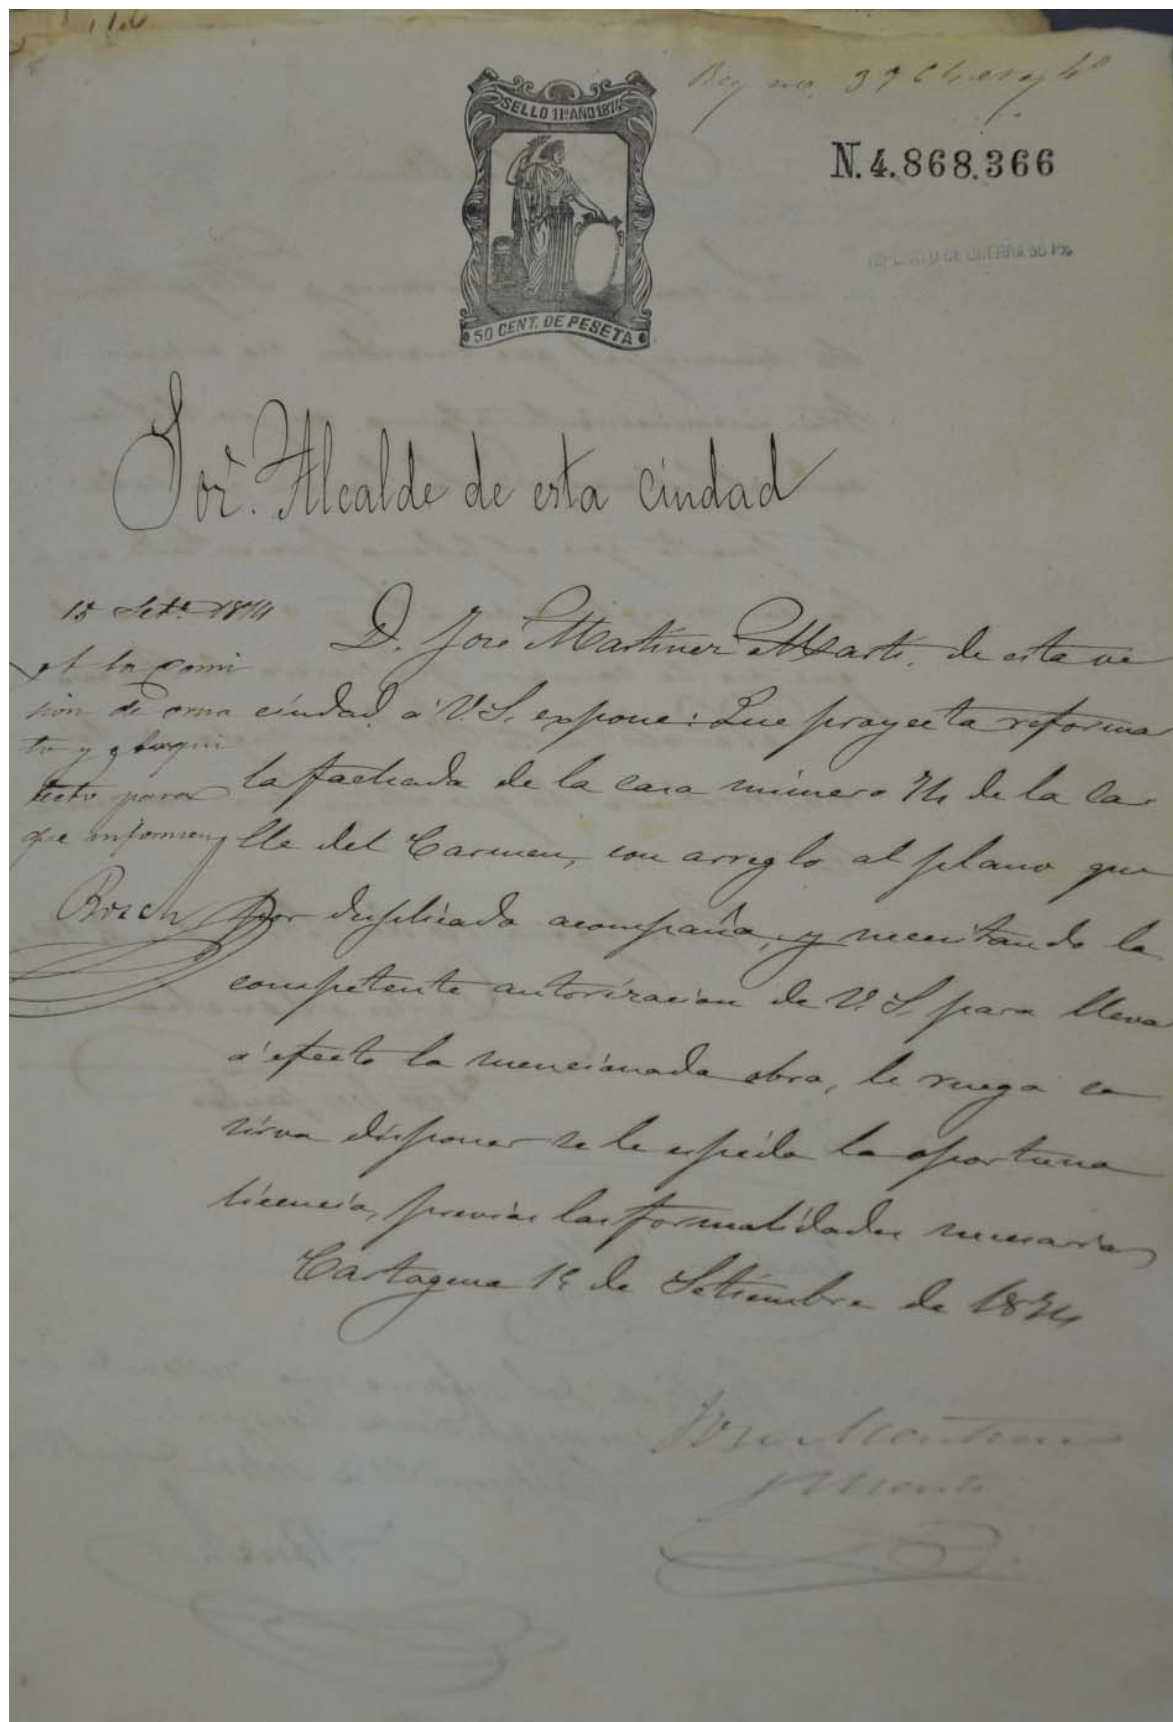 SELLO 11º AÑO 1874
50 CENT. DE PESETA
N. 4.868.366
IMPUESTO DE GUERRA 50 P%
Sor. Alcalde de esta ciudad
Setе. 1874
A la comi
sion de orna
to y Arqui
tecto para
que informen
Bosch
D. José Martinez Marti, de esta ve
cindad á V.S. expone: Que proyecta reformar
la fachada de la casa número 74 de la ca
lle del Carmen, con arreglo al plano que
por duplicado acompaña, y necesitando la
competente autorizacion de V.S. para llevar
á efecto la mencionada obra, le ruega se
sirva disponer se le espida la oportuna
licencia, previas las formalidades necesarias
Cartagena de Setiembre de 1874
José Martinez
Marti